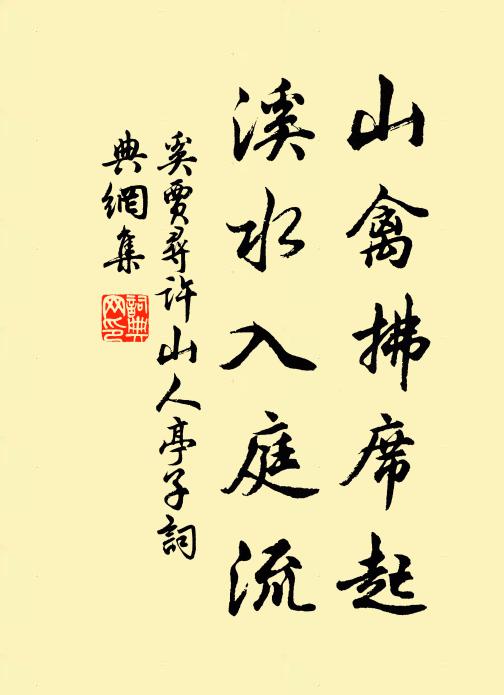 山禽拂席起
溪水入庭流
奚賈尋許山人亭子詞
典網集
詞典网印